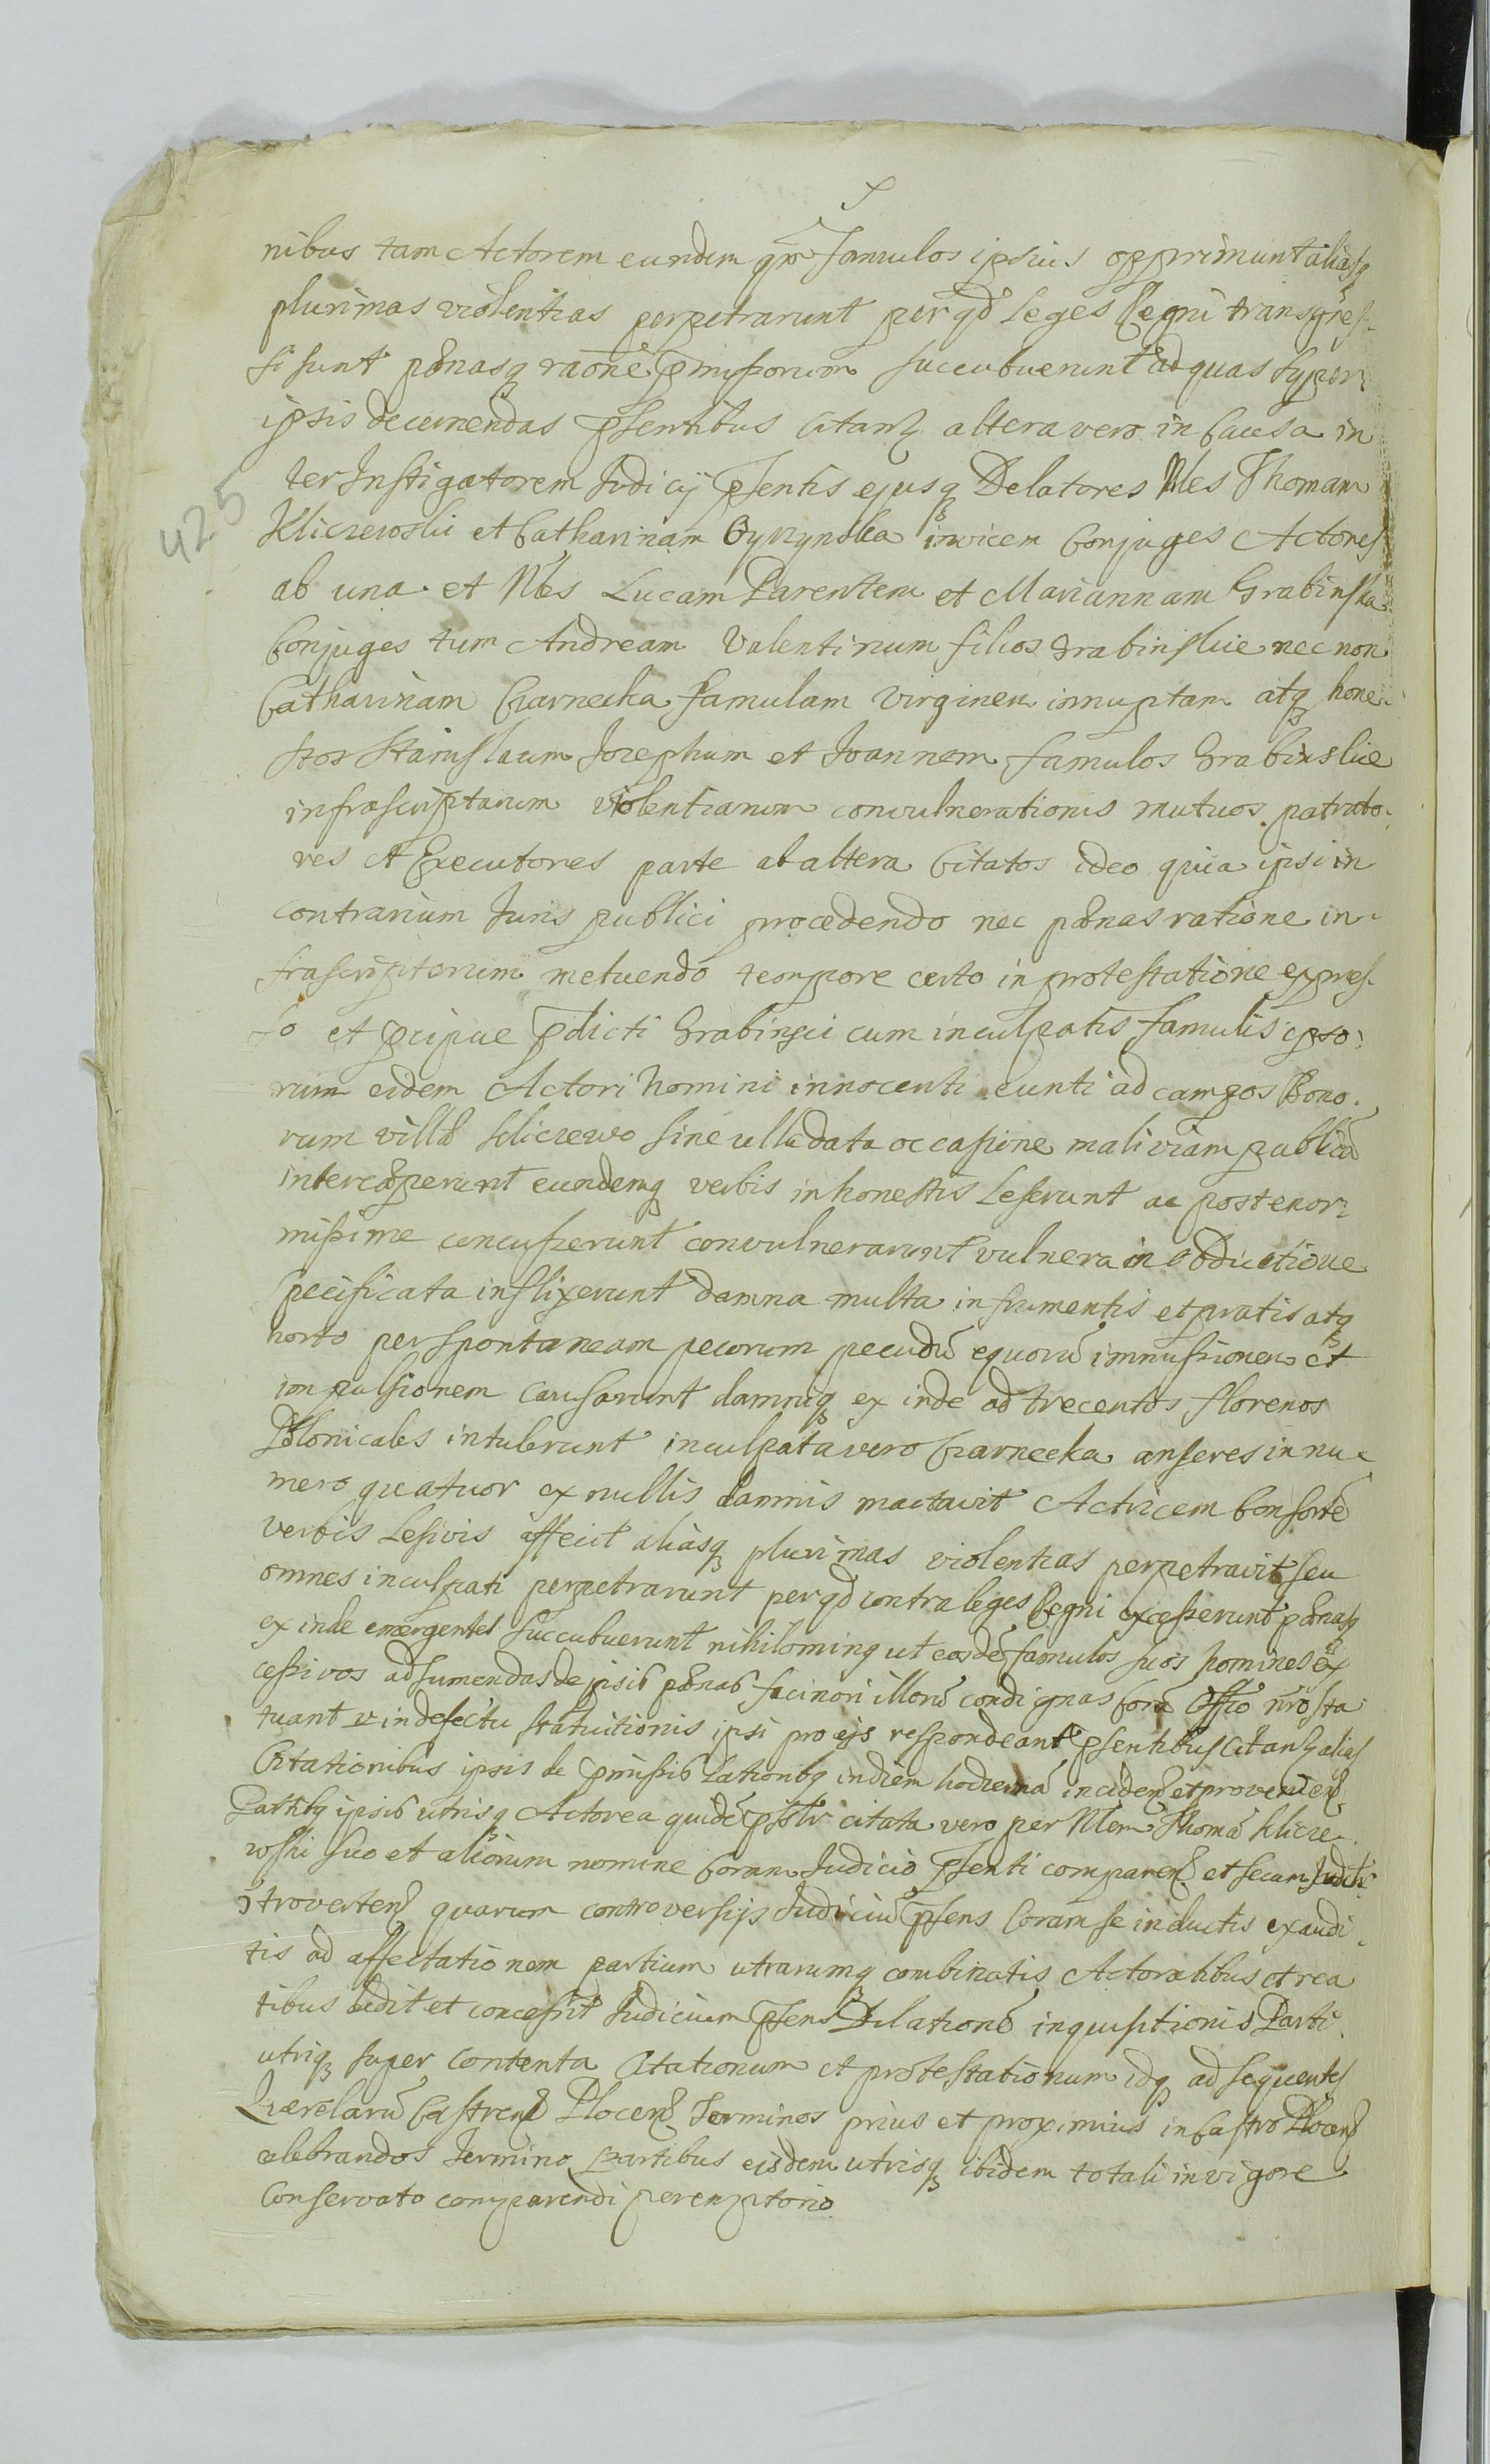 nibus tam Actorem eundem qm̄ famulos ipsius opprimunt aliasq
plurimas violentias perpetrarunt per qd Leges Regni transgres-
si sunt pœnasq raōne p̄missorum succubuerunt ad quas super
ipsis decernendas p̄sentibus citant altera vero in Causa in
ter Instigatorem Judicÿ p̄sentis ejusq Delatores Nles Thomam
Kliczewski et Catharinam invicem Conjuges Actores
ab una et Nles Lucam Parentem et Mariannam Grabinska
Conjuges tum Andream Valentinum filios Grabinskie nec non
Catharinam Czarnecka famulam Virginem innuptam atq hone-
stos Stanislaum Josephum et Joannem famulos Grabinskie
infrascriptarum violentiarum convulnerationis mutuos patrato-
res et Executores parte ab altera Citatos ideo quia ipsi in
contrarium Juris publici procedendo nec pœnas ratione in-
frascriptorum metuendo tempore certo in protestatione expres-
so et p̄cipue p̄dicti Grabinsci cum inculpatis famulis ipso-
rum eidem Actori homini innocenti eunti ad campos Bono-
rum villæ Kliczewo sine ulla data occasione mali viam publicā
interceperunt eundemq verbis inhonestis Leserunt ac post enor-
missime concusserunt convulnerarunt vulnera in obductione
specificata inflixerunt damna multa in frumentis et pratis atq
horto per spontaneam pecorum pecudū equorū immissionem et
impulsionem causarunt damniq ex inde ad trecentos florenos
Polonicales intulerunt inculpata vero Czarnecka anseres in nu-
mero quatuor ex nullis damnis mactavit Actricem Consortē
verbis Lesivis affecit aliasq plurimas violentias perpetravit seu
omnes inculpati perpetrarunt per qd contra leges Regni excesserunt pœnasq
ex inde emergentes succubuerunt nihilominq ut eosdē famulos suos homines ex
cessivos ad sumendas de ipsis pœnas facinori illorū condignas Corā Offō nro sta-
tuant v in defectu statuitionis ipsi pro ejs respondeant p̄sentibus citant alias
Citationibus ipsis de p̄missis Lationbq in diem hodiernā inciden et provenien
Partibq ipsis utrisq Actorea quidē citata vero per Nlem Thomā Klicze-
wski suo et aliorum nomine Coram Judicio p̄senti comparen et secum
ɔtroverten quarum controversÿs Judiciū p̄sens Coram se inductis exaudi-
tis ad affectationem partium utrarumq combinatis Actoratibus et rea
tibus dedit et concessit Judicium p̄sens Dilationē inquisitionis Parti
utriq super contenta Citationum et protestationum idq ad sequentes
Querelarū Castren Plocen Terminos prius et proximius in Castro Plocen
celebrandos Termino Partibus eisdem utrisq ibidem totali in vigore
Conservato comparendi peremptorio
425